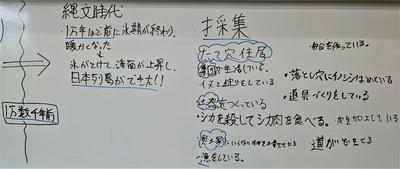 縄文時代
・1万年ほど前に氷期が終わり、
暖かくなった
氷がとけて、海面が上昇し、
日本列島ができた!!
1万数千年前
採集
たて穴住居
集団で生活している。
イヌと狩りをしている
土器をつくっている
・シカを殺してシカ肉を食べる。
・漁をしている。
・落とし穴にイノシシ
・道具づくりをしている
道ができてる